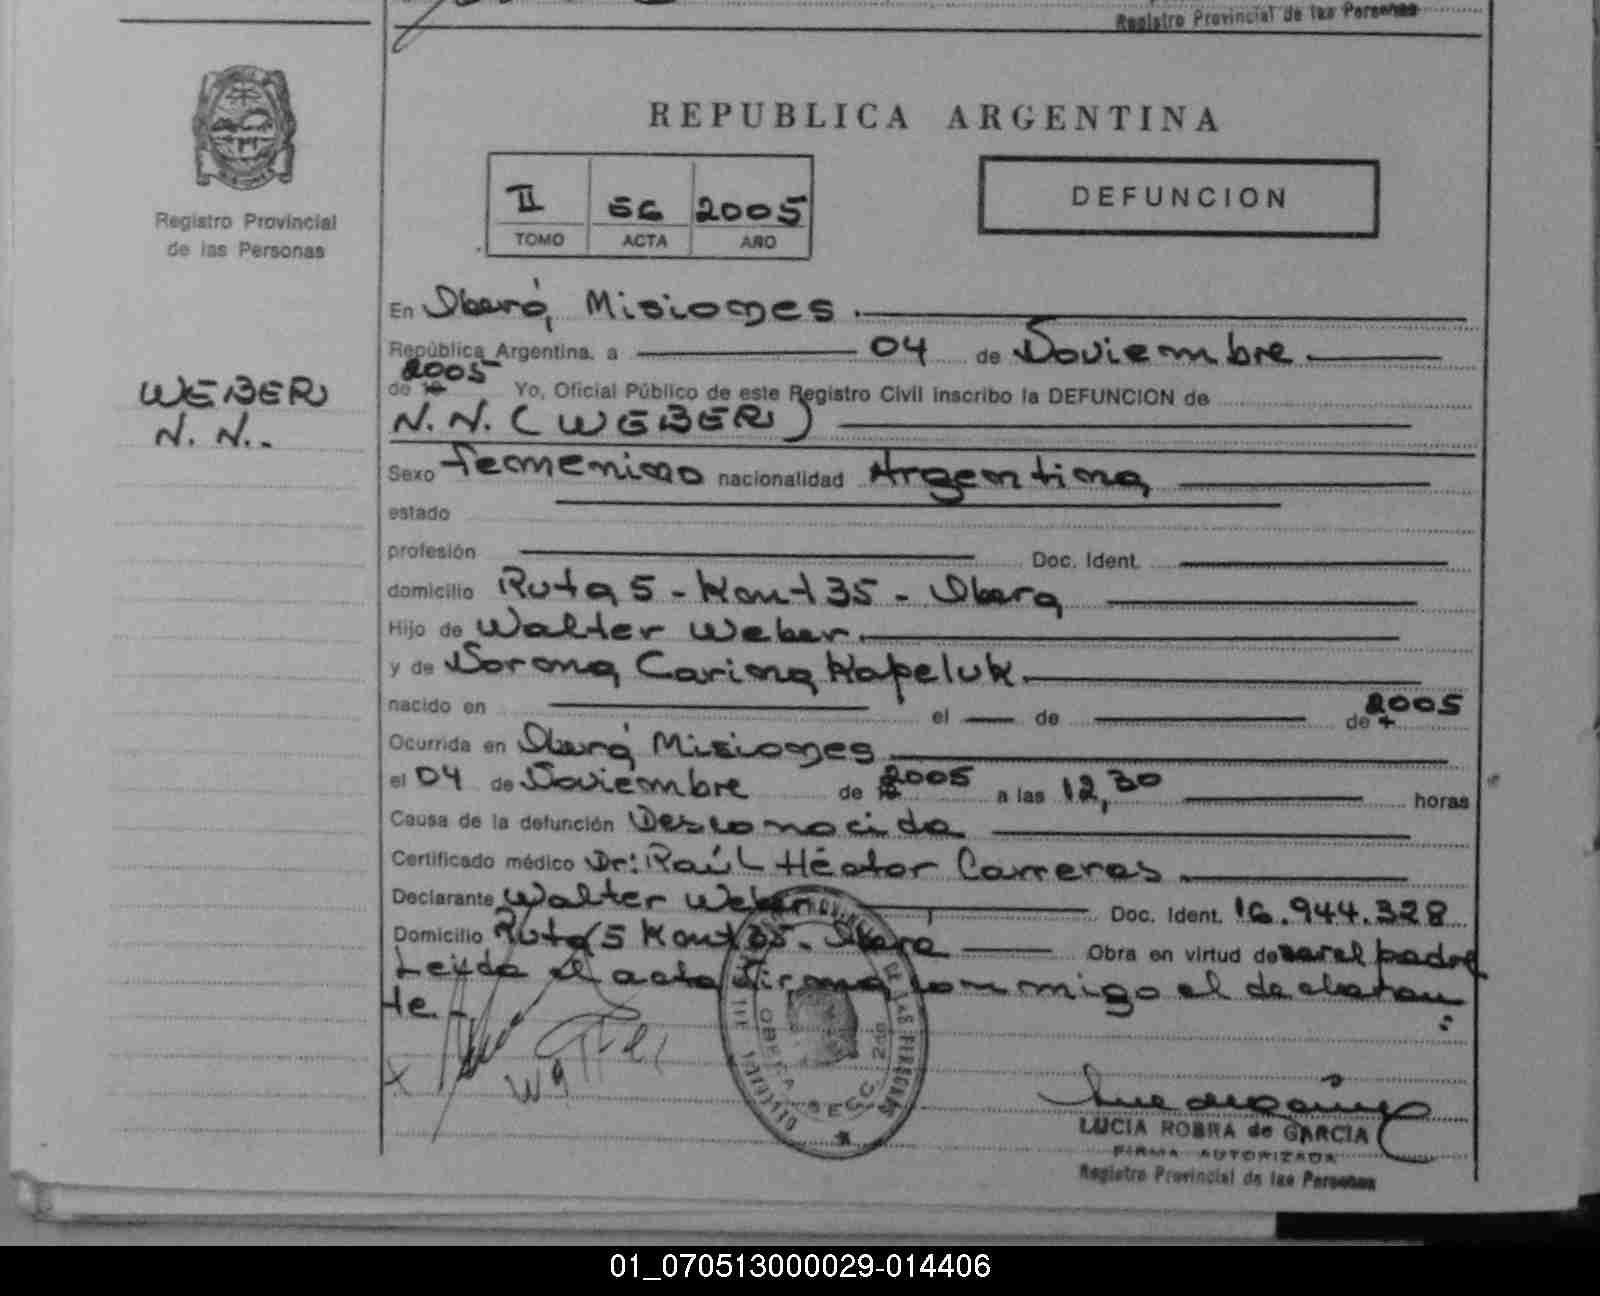 Registro Provincial de las Personas
REPUBLICA ARGENTINA
II 56 2005
TOMO ACTA AÑO
DEFUNCION
Registro Provincial
de las Personas
WEBER
N. N.-
En Oberá, Misiones.
República Argentina. a 04 de Noviembre
de 2005 Yo, Oficial Público de este Registro Civil inscribo la DEFUNCION de
N. N. (WEBER)
Sexo femenino nacionalidad Argentina
estado
profesión Doc. Ident.
domicilio Ruta 5 - Kmt 35 - Obera
Hijo de Walter Weber.
y de Carina Kapeluk.
nacido en el de de 2005
Ocurrida en Oberá Misiones
el 04 de Noviembre de 2005 a las 12,30 horas
Causa de la defunción Desconocida
Certificado médico Dr: Raúl Héctor Carreras.
Declarante Walter Weber Doc. Ident. 16.944.328
Domicilio Ruta 5 Kmt 35. Obera Obra en virtud de ser el padre
Leída el acta firma conmigo el declaran
te.-
X
LUCIA ROBRA de GARCIA
FIRMA AUTORIZADA
Registro Provincial de las Personas
01_070513000029-014406